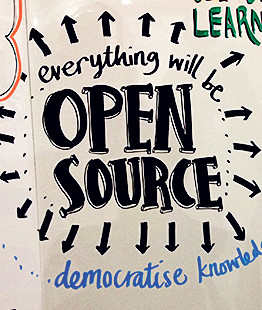 LEARN
everything will be
OPEN
SOURCE
democratise